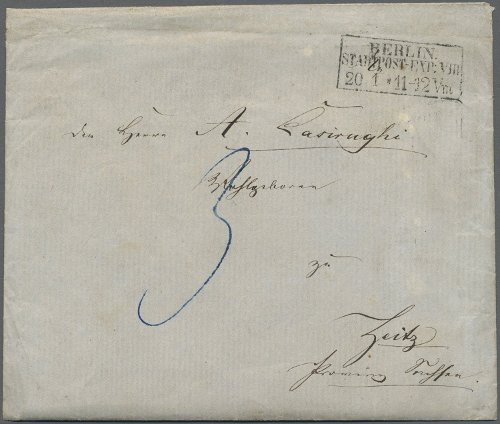 BERLIN.
STADTPOST-EXP. VIII
20 1 * 11-12 Vm
Den Herrn A. Casiraghi
Wohlgeboren
3
zu
Zeitz
Provinz Sachsen.